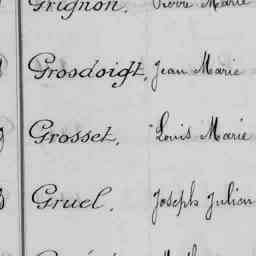 Grignon. Pierre Marie
Grosdoigt, Jean Marie
Grosset, Louis Marie
Gruel. Joseph Julien